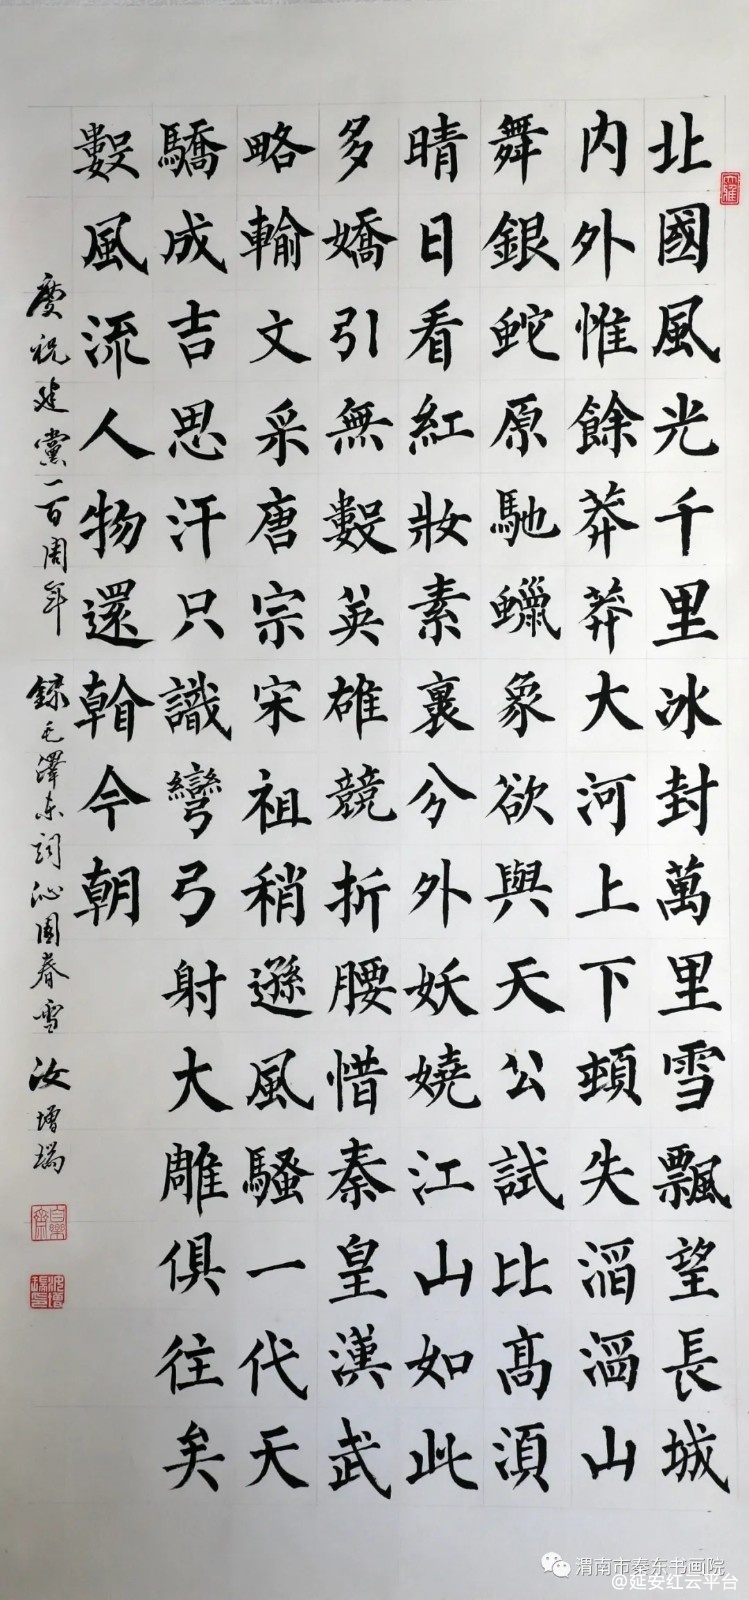 大雅
北國風光千里冰封萬里雪飄望長城
内外惟餘莽莽大河上下頓失滔滔山
舞銀蛇原馳蠟象欲與天公試比高須
晴日看紅妝素裹分外妖嬈江山如此
多嬌引無數英雄競折腰惜秦皇漢武
略輸文采唐宗宋祖稍遜風騷一代天
驕成吉思汗只識彎弓射大雕俱往矣
數風流人物還看今朝
慶祝建黨一百周年 錄毛澤東詞沁園春雪 汝增瑞
渭南市秦东书画院
@延安红云平台